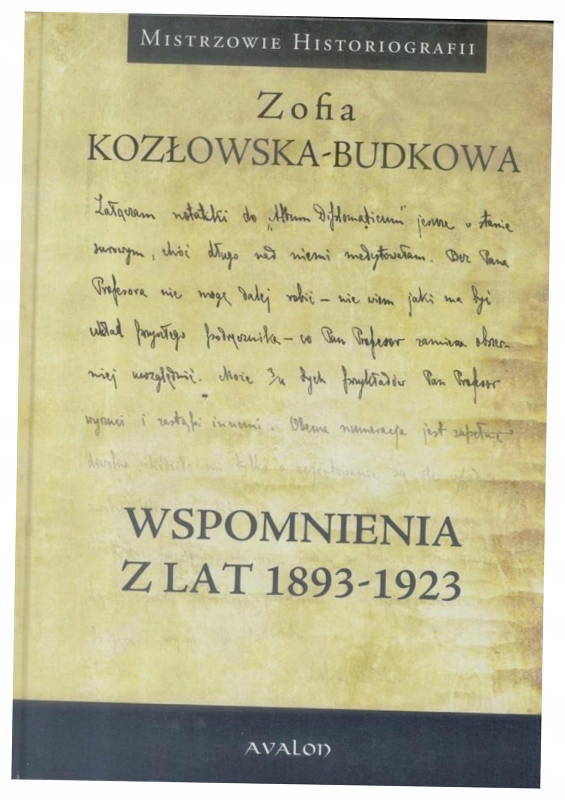 MISTRZOWIE HISTORIOGRAFII
Zofia
KOZŁOWSKA-BUDKOWA
Załączam notatki do „Album Diplomaticum" jeszcze w stanie
surowym, choć długo nad niemi medytowałam. Bez Pana
Profesora nie mogę dalej robić – nie wiem jaki ma być
układ przyszłego podręcznika – co Pan Profesor zamierza obszer-
niej uwzględnić. Może 3/4 tych przykładów Pan Profesor
wyrzuci i zastąpi innemi. Obecna numeracja jest zupełnie
dowolna chodziło mi tylko o
WSPOMNIENIA
Z LAT 1893-1923
AVALON